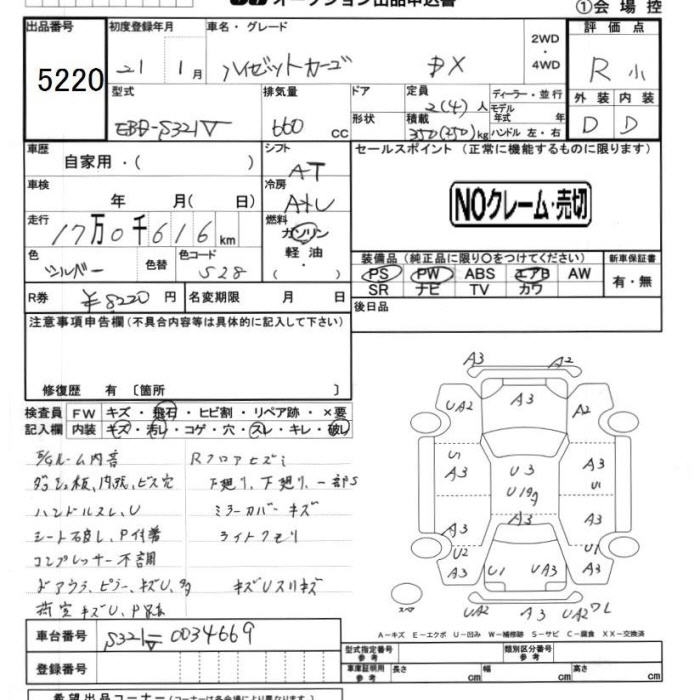 オークション出品申込書
①会場控
出品番号
5220
初度登録年月
21年 1月
車名・グレード
ハイゼットカーゴ DX
2WD・4WD
評価点
R 小
外装 内装
D D
型式
EBD-S321V
排気量
660 cc
ドア
形状
定員
2(4)人
積載
350(250)kg
ディーラー・並行
モデル年式 年
ハンドル 左・右
車歴
自家用・( )
シフト
AT
セールスポイント (正常に機能するものに限ります)
NOクレーム・売切
車検
年 月( 日)
冷房
走行
17万0千616km
燃料
ガソリン
軽油・
( )
色
シルバー
色替
色コード
S28
装備品 (純正品に限り〇をつけてください)
新車保証書
PS PW ABS エアB AW
SR ナビ TV カワ
有・無
R券
¥8220円
名変期限 月 日
後日品
注意事項申告欄(不具合内容等は具体的に記入して下さい)
修復歴 有 〔箇所 〕
検査員記入欄
FW キズ・飛石・ヒビ割・リペア跡・×要
内装 キズ・汚レ・コゲ・穴・スレ・キレ・破レ
ルーム内音 Rフロアヒズミ
内張、ビス穴 下廻り、下廻り、一部S
ハンドルスレ、U ミラーカバーキズ
シート、P付着 ライトクモリ
コンプレッサー不調
ドアウラ、ピラー、キズU、多 キズUスリキズ
荷室キズU、P
A3 A2
UA2 A3 A2
U1 A3 U3 A3 U1
U19
A3 A3 A3
U2 U1
A3 U1 UA3 A3
スペア
UA2 A3 UA2
A-キズ E-エクボ U-凹み W-補修跡 S-サビ C-腐食 XX-交換済
車台番号
S321V-0034669
登録番号
型式指定番号 参考
類別区分番号 参考
車庫証明用 参考
長さ cm
幅 cm
高さ cm
希望出品コーナー(コーナーは各会場により異なります)